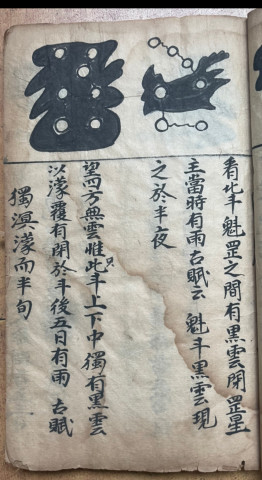 看北斗魁罡之間有黑雲閉罡星
主當時有雨古賦云 魁斗黑雲現
之於半夜
望四方無雲惟北斗上下中獨有黑雲
以濛覆有閉於斗後五日有雨 古賦
獨溟濛而半旬